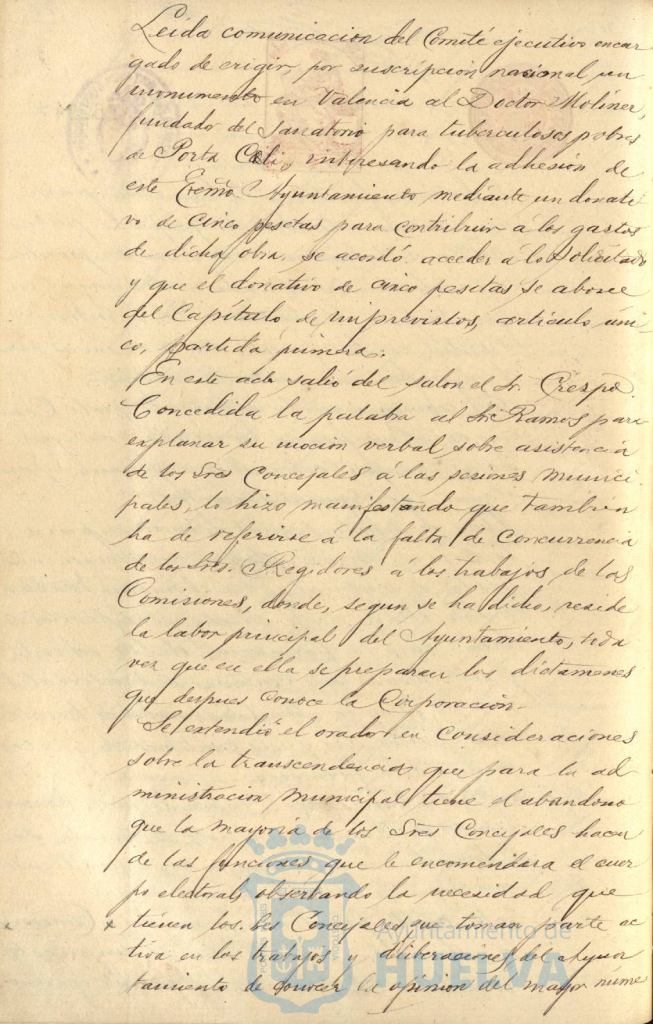 Leida comunicacion del Comité ejecutivo encar
gado de erigir, por suscripción nacional un
monumento en Valencia al Doctor Moliner,
fundado del Sanatorio para tuberculosos pobres
de Porta Cœli, interesando la adhesión de
este Excmo Ayuntamiento mediante un donati
vo de cinco pesetas para contribuir á los gastos
de dicha obra, se acordó acceder á lo solicitado
y que el donativo de cinco pesetas se abone
del Capítulo de imprevistos, artículo úni
co, partida primera.
En este acto salió del salon el Sr. Crespo.
Concedida la palabra al Sr. Ramos para
explanar su moción verbal sobre asistencia
de los Sres Concejales á las sesiones munici-
pales, lo hizo manifestando que tambien
ha de referirse á la falta de concurrencia
de los Sres. Regidores á los trabajos de las
Comisiones, donde, segun se ha dicho, reside
la labor principal del Ayuntamiento, toda
vez que en ella se preparan los dictamenes
que despues conoce la Corporación.
Se extendió el orador en consideraciones
sobre la transcendencia que para la ad
ministracion municipal tiene el abandono
que la mayoría de los Sres Concejales hacen
de las funciones que le encomendara el cuer
po electoral, observando la necesidad que
tienen los Sres Concejales que toman parte ac
tiva en los trabajos y deliberaciones del Ayun
tamiento de conocer la opinion del mayor nume
Ayuntamiento de
HUELVA